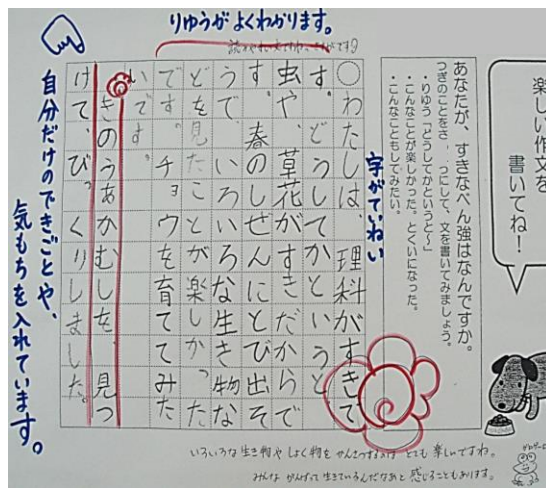 楽しい作文を
書いてね！
あなたが、すきなべん強はなんですか。
つぎのことをさ つにして、文を書いてみましょう。
・りゆう「どうしてかというと〜」
・こんなことが楽しかった。とくいになった。
・こんなこともしてみたい。
りゆうが よくわかります。
字がていねい
○わたしは、理科がすきで
す。どうしてかというと、
虫や、草花がすきだからで
す。春のしぜんにとび出そ
うで、いろいろな生き物な
どを見たことが楽しかった
です。チョウを育ててみた
いです。
きのうあかむしを、見つ
けて、びっくりしました。
自分だけのできごとや、
気もちを入れています。
いろいろな生き物やしょく物をかんさつするのは とても楽しいですね。
みんな がんばって生きているんだなあと 感じることもあります。